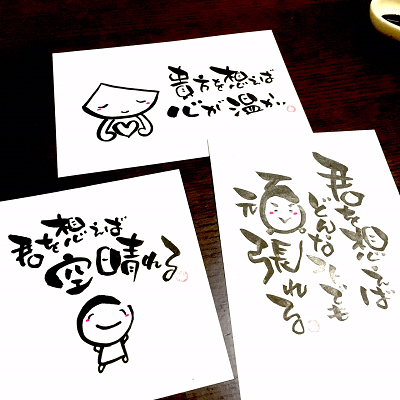 貴方を想えば
心が温か。
君を想えば
空晴れる
君を想えば
どんなコトでも
頑張れる。